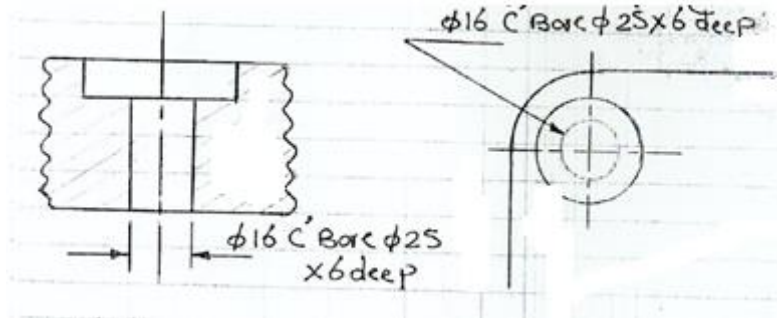 φ16 C'Bore φ25x6 deep
φ16 C'Bore φ25
x6 deep